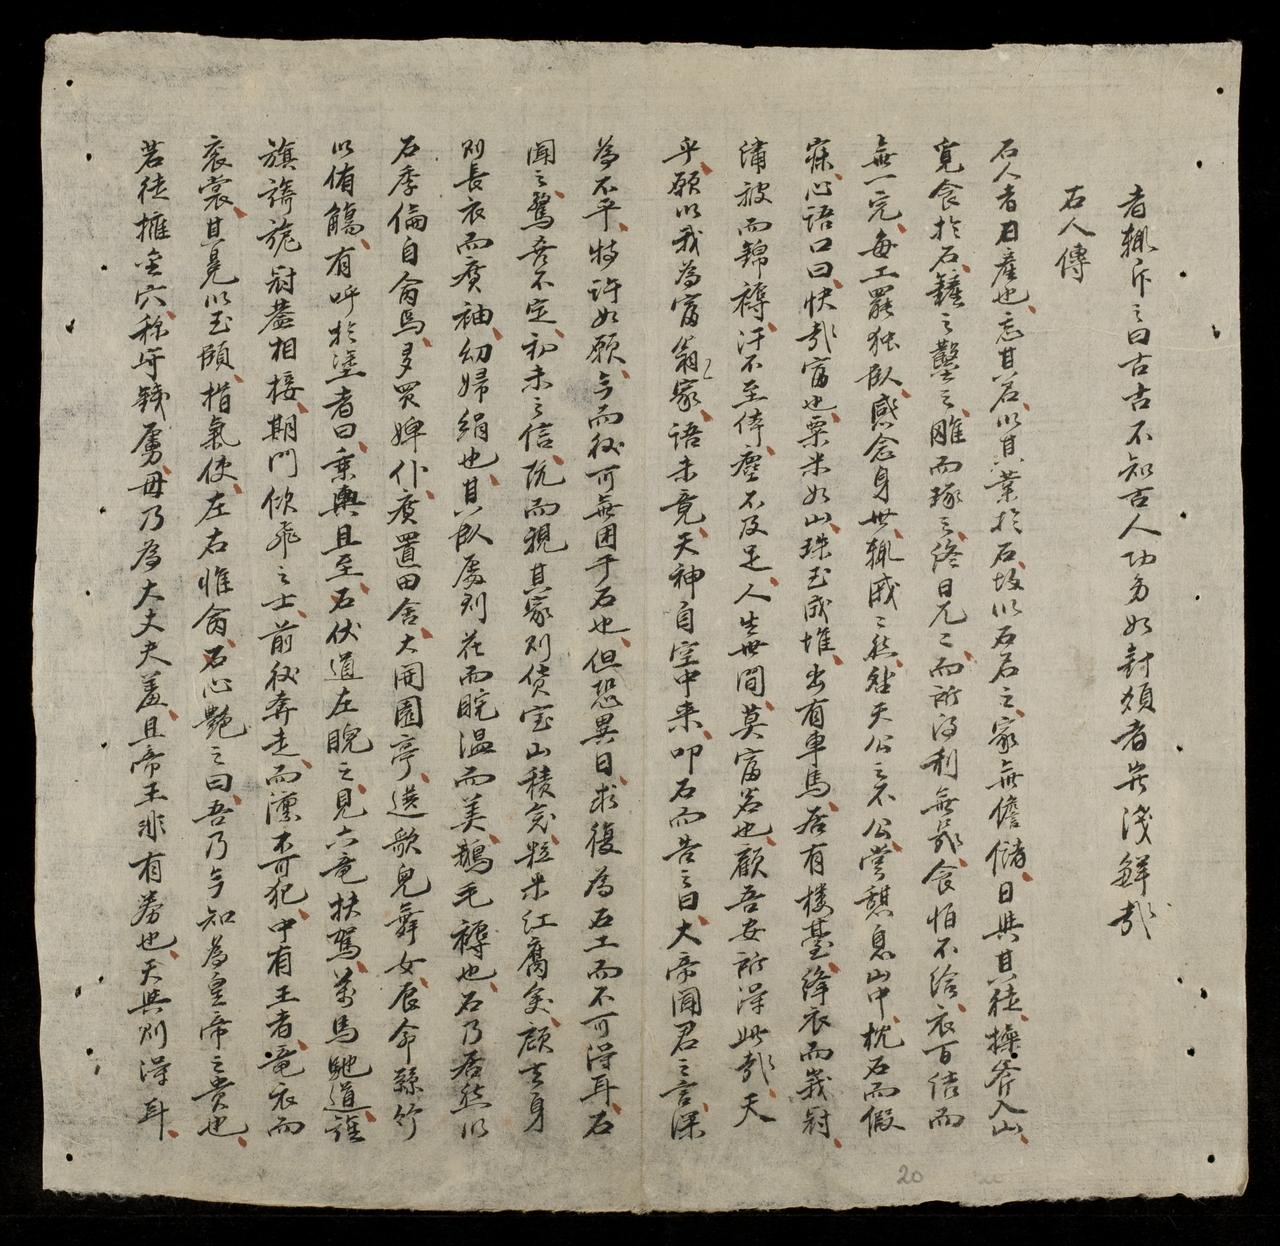 者輒斥之曰古古不知古人功多如封煩者豈淺鮮哉
石人傳
石人者日產也忘其名以其業於石故以石名之家無儋儲日與其徒操斧入山
覓食於石鍾之鑿之雕而琢之終日兀〻而所得利無幾食怕不給衣百結而
無一完每工罷独臥感念身世輒戚〻然望天公之不公嘗憩息山中枕石而假
寐心語口曰快哉富也粟米如山珠玉成堆出有車馬居有楼臺绛衣而峩冠
繡被而錦褥汗不至体塵不及足人生世間莫富若也顧吾安所得此哉天
乎願以我為富翁家語未竟天神自空中来叩石而告之曰大帝聞君之言深
為不平特許如願今而後可無困于石也但恐異日求復為石工而不可得耳石
聞之驚喜不定初未之信旋而視其家則貨宝山積矣粒米紅腐矣顧玄身
則長衣而廣袖幼婦絹也其臥處則花而睆温而美鵝毛褥也石乃居然以
石季倫自命焉多買婢仆廣置田舍大開園亭选歌兒舞女辰命絲竹
以侑觴有呼於塗者曰乘輿且至石伏道左睨之見六竜扶駕萬馬馳道旌
旗旖旎冠蓋相接期門佽飛之士前後奔走而凛不可犯中有王者竜衣而
袞裳其冕以玉頤指氣使左右惟命石心艷之曰吾乃今知為皇帝之貴也
若徒擁金穴称守錢虜毋乃為大丈夫羞且帝王非有券也天與則得耳
20